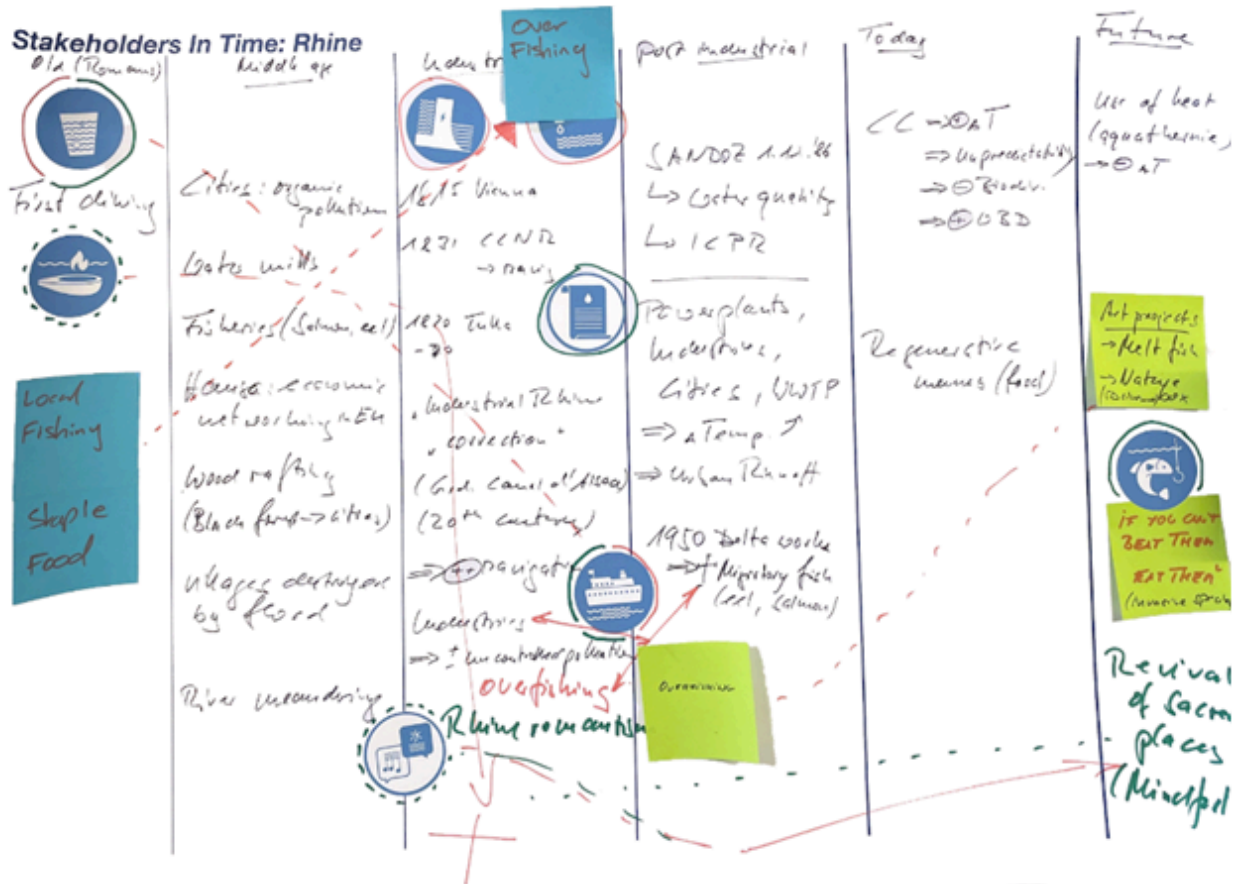 Stakeholders In Time: Rhine
Old (Romans)
First diking
Local
Fishing
Staple
Food
Middle age
Cities: organic
pollution
Water mills
Fisheries (Salmon, eel)
Hansa: economic
networking in EU
Wood rafting
(Black forest → cities)
villages destroyed
by flood
River meandering
Industri
Over
Fishing
1815 Vienna
1831 CCNR
→ navig
1820 Tulla
"Industrial Rhine
"correction"
(20th century)
⇒ ++ navigation
Industries
⇒ ± uncontrolled pollution
overfishing
Rhine romantism
post industrial
SANDOZ 1.11.'86
↳ Water quality
↳ ICPR
Powerplants,
Industries,
Cities, WWTP
⇒ ΔTemp. ↗
⇒ Urban Runoff
1950 Delta works
⇒ † Migratory fish
(eel, salmon)
Overfishing
Today
CC ⇒ ⊕ΔT
⇒ Unpredictability
⇒ ⊖ Biodiv.
⇒ ⊕
Regenerative
(food)
Future
Use of heat
(aquathermie)
→ ⊖ ΔT
Art projects
→ Melt fish
→ Nataye
IF YOU CAN'T
BEAT THEM
EAT THEM"
(invasive
Revival
of Sacra
places